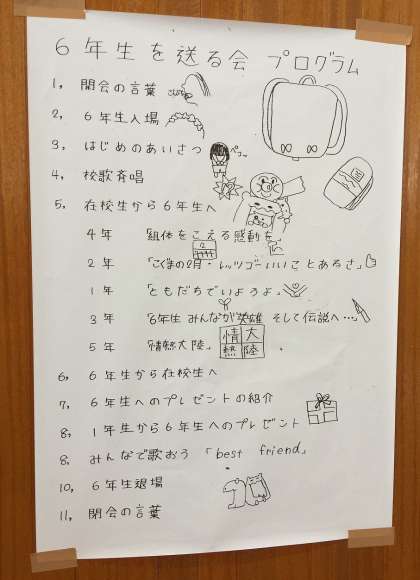 6年生を送る会 プログラム
1, 開会の言葉
2, 6年生入場
3, はじめのあいさつ
ペコッ
4, 校歌斉唱
5, 在校生から6年生へ
4年 「組体をこえる感動を」
2年 「こぐまの2月・レッツゴーいいことあるさ」
1年 「ともだちでいようよ」
3年 「6年生 みんなが英雄 そして伝説へ…」
5年 「情熱大陸」
情大
熱陸
6, 6年生から在校生へ
7, 6年生へのプレゼントの紹介
8, 1年生から6年生へのプレゼント
8, みんなで歌おう 「best friend」
10, 6年生退場
11, 閉会の言葉